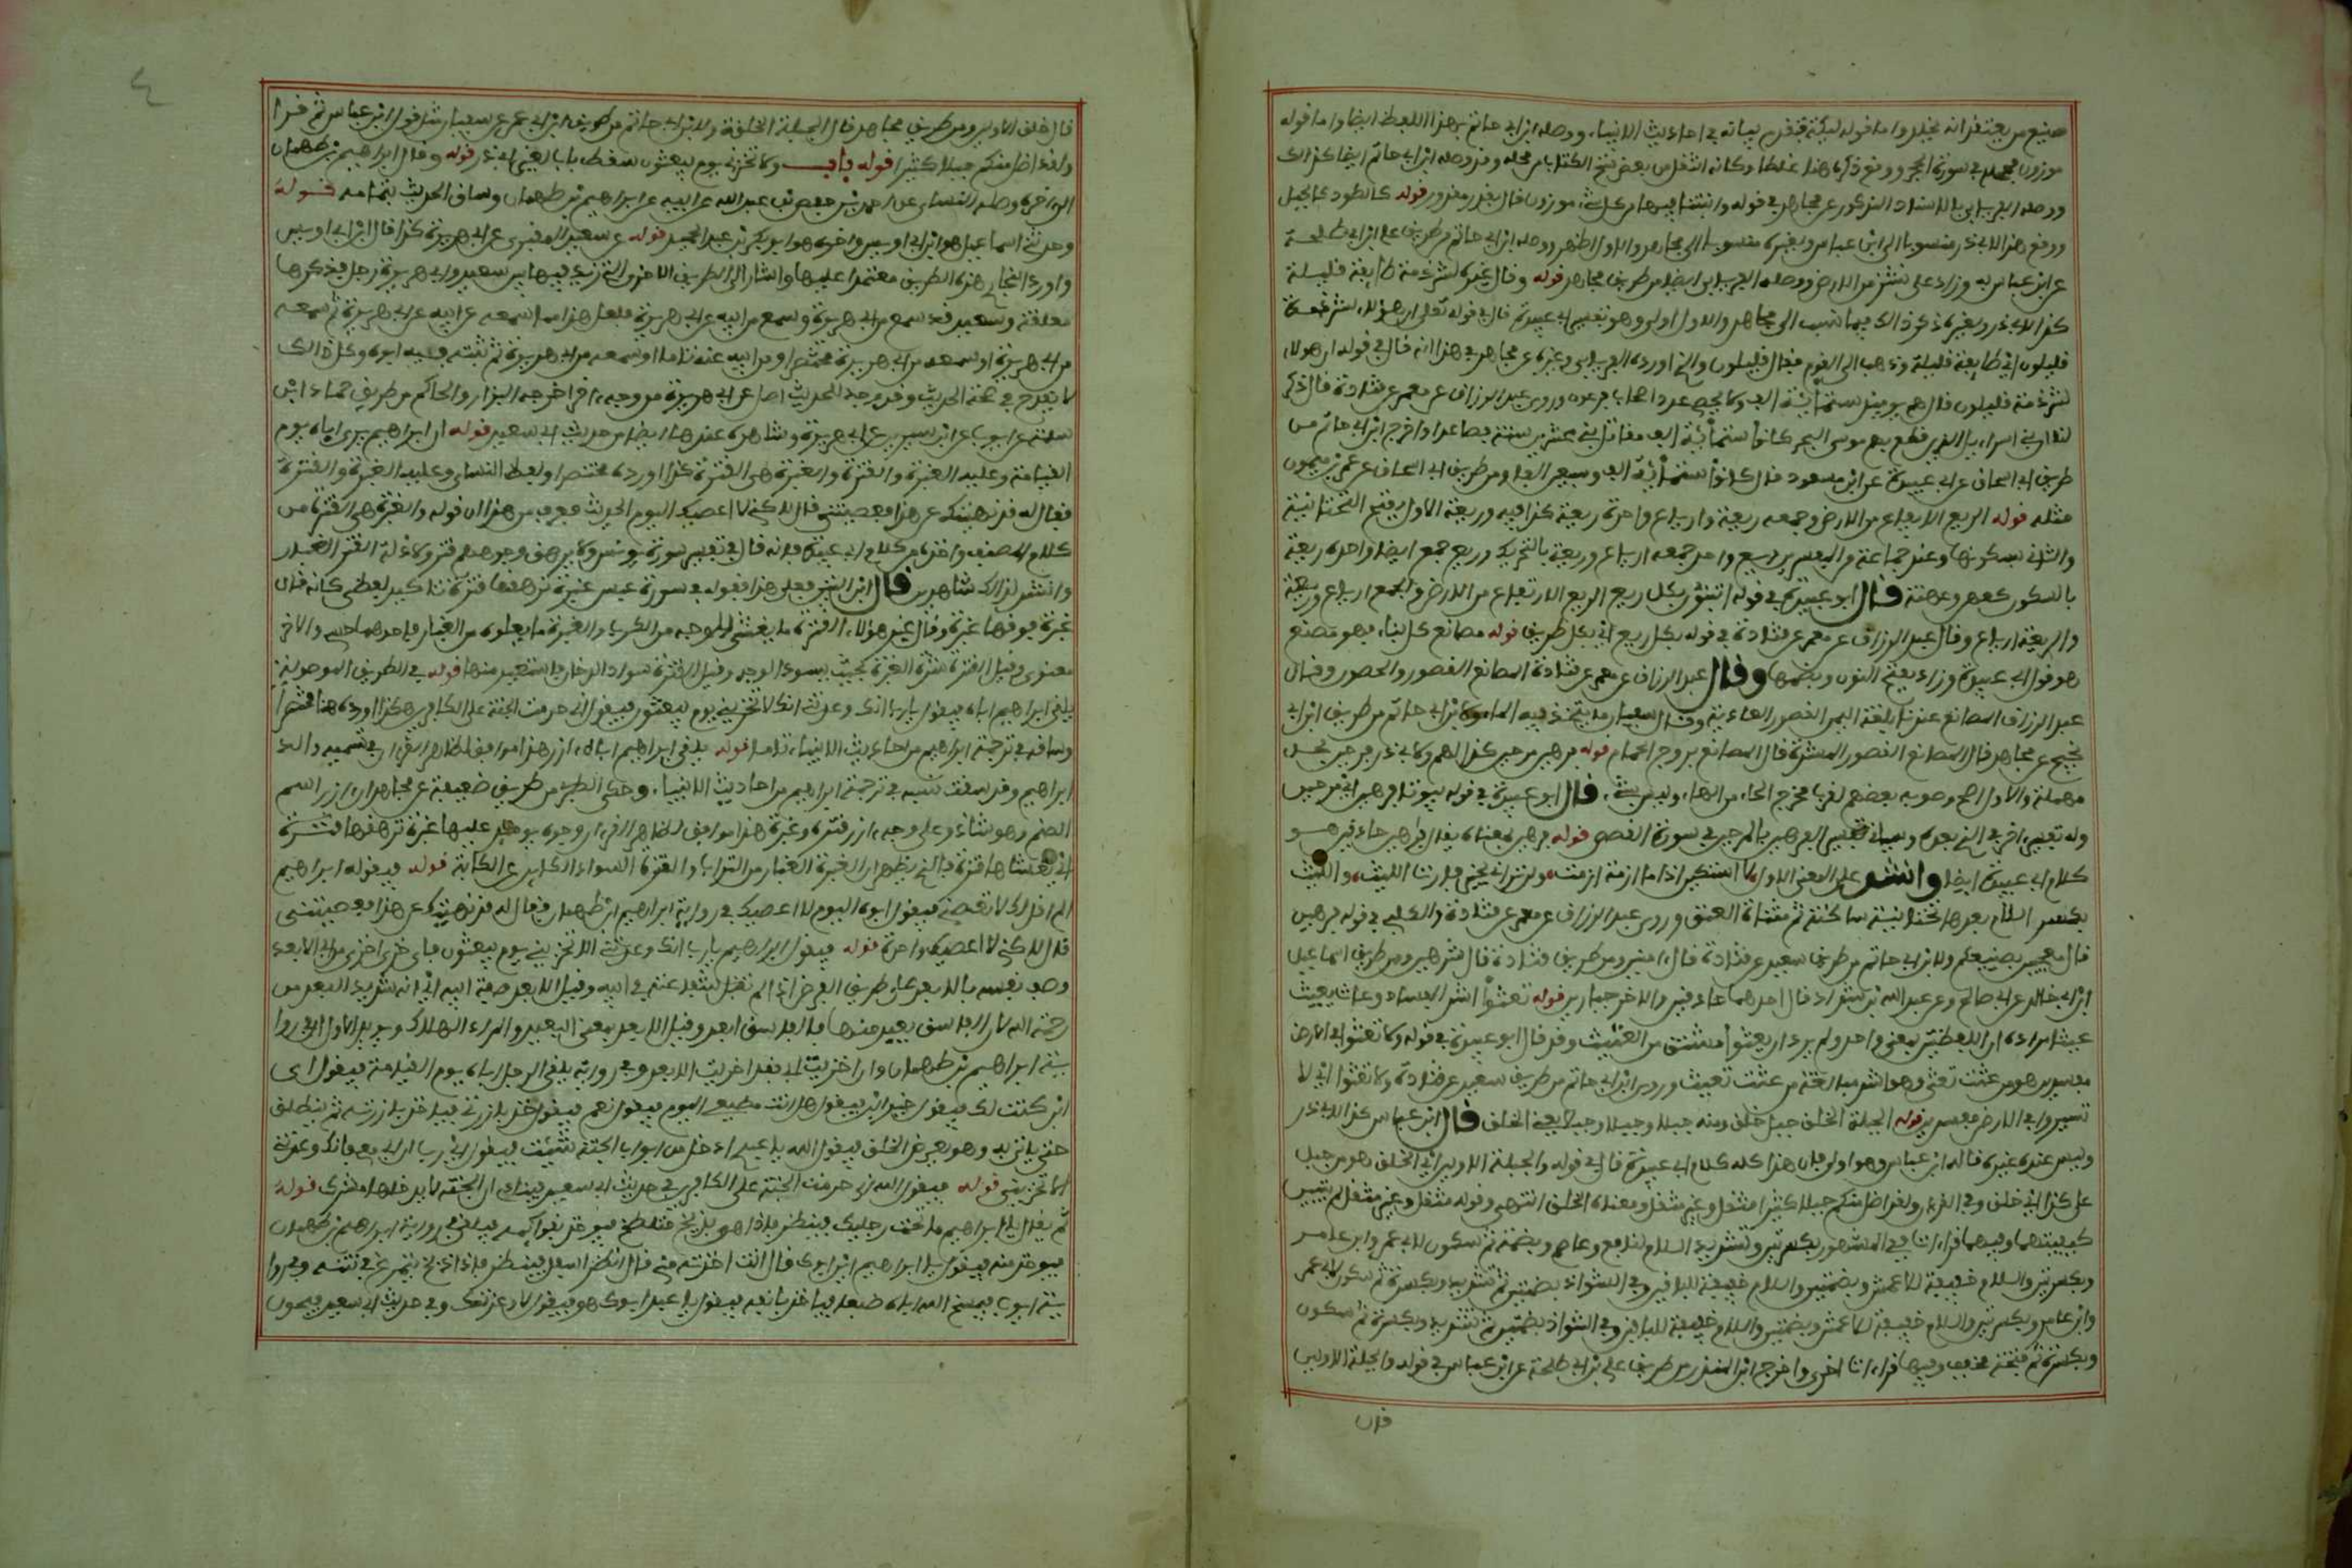 صنيع من يعتقد انه يخلد واما قوله ليكة فتقدم بيانه في احاديث الانبياء ووصله ابن ابي حاتم بهذا اللفظ ايضا واما قوله
موزون فمحله في سورة الحجر ووقع ذكره هنا غلطا وكانه انتقل من بعض نسخ الكتاب من محله وقد وصله ابن ابي حاتم ايضا كذلك
ووصله الفريابي بالاسناد المذكور عن مجاهد في قوله وانبتنا فيها من كل شيء موزون قال بقدر مقدور قوله كالطود كالجبل
ووقع هذا لابي ذر منسوبا الى ابن عباس ولغيره منسوبا الى مجاهد والاول اظهر ووصله ابن ابي حاتم من طريق علي بن ابي طلحة
عن ابن عباس به وزاد على نشز من الارض ووصله الفريابي ايضا من طريق مجاهد قوله وقال غيره لشرذمة طائفة قليلة
كذا لابي ذر ولغيره ذكر ذلك فيما نسب الى مجاهد والاول اولى وهو تفسير ابي عبيدة قال في قوله تعلى ان هؤلاء لشرذمة
قليلون اي طائفة قليلة وذهب الى القوم فقال قليلون والذي اورده الفريابي وغيره عن مجاهد في هذا انه قال في قوله ان هولاء
لشرذمة قليلون قال هم يومئذ ستمائة الف ولا يحصى عدد اصحاب فرعون وروى عبد الرزاق عن معمر عن قتادة قال ذكر
لنا ان بني اسراءيل الذين قطع بهم موسى البحر كانوا ستمائة الف مقاتل بني عشرين سنة فصاعدا واخرج ابن ابي حاتم من
طريق ابي اسحاق عن ابي عبيدة عن ابن مسعود قال كانوا ستمائة الف وسبعين الفا ومن طريق ابي اسحاق عن عمرو بن ميمون
مثله قوله الريع الايفاع من الارض وجمعه ريعة وارياع واحده ريعة كذا فيه وريعة الاول بفتح التحتانية
والثاني بسكونها وعند جماعة من المفسرين ريع واحد جمعه ارياع وريعة بالتحريك وريع جمع ايضا واحده ريعة
بالسكون كعهن وعهنة قال ابو عبيدة في قوله اتبنون بكل ريع الريع الارتفاع من الارض والجمع ارياع وريعة
والريعة ارياع وقال عبد الرزاق عن معمر عن قتادة في قوله بكل ريع اي بكل طريق قوله مصانع كل بناء فهو مصنع
هو قول ابي عبيدة وزاد بفتح النون وبضمها وقال عبد الرزاق عن معمر عن قتادة المصانع القصور والحصون وقال
عبد الرزاق المصانع عندنا بلغة اليمن القصور العادية وقال سفيان ما يتخذ فيه الماء ولابن ابي حاتم من طريق ابن ابي
نجيح عن مجاهد قال المصانع القصور المشيدة قال المصانع بروج الحمام قوله فرهين مرحين كذا لهم ولابي ذر فرحين بحاء
مهملة والاول اصح وصوبه بعضهم لقرب مخرج الحاء من الهاء وليس بشيء قال ابو عبيدة في قوله بيوتا فرهين اي مرحين
وله تفسير اخر في الذي بعده وسياتي تفسير الفرحين بالمرحين في سورة القصص قوله فرهين بمعناه يقال فارهين حاذقين هو
كلام ابي عبيدة ايضا وانشد على المعنى الاول لا استكين اذا ما ازمة ازمت ولن تراني بخير فاره الليت والليت
بكسر اللام بعدها تحتانية ساكنة ثم مثناة العنق وروى عبد الرزاق عن معمر عن قتادة والكلبي في قوله فرهين
قال معجبين بصنيعكم ولابن ابي حاتم من طريق سعيد عن قتادة قال امنين ومن طريق قتادة قال شرهين ومن طريق اسماعيل
ابن ابي خالد عن ابي صالح وعن عبد الله بن شداد قال احدهما حاذقين والاخر جبارين قوله تعثوا اشد الفساد وعاث يعيث
عيثا مراده ان اللفظتين بمعنى واحد ولم يرد ان تعثوا مشتق من العيث وقد قال ابو عبيدة في قوله ولا تعثوا في الارض
مفسدين هو من عثيت تعثى وهو اشد مبالغة من عثت تعيث وروى ابن ابي حاتم من طريق سعيد عن قتادة ولا تعثوا اي لا
تسيروا في الارض مفسدين قوله الجبلة الخلق جبل خلق ومنه جبلا وجبلا وجبلا يعني الخلق قال ابن عباس كذا لابي ذر
وليس عند غيره قاله ابن عباس وهو اولى فان هذا كله كلام ابي عبيدة قال في قوله والجبلة الاولين اي الخلق هو من جبل
على كذا اي خلق وفي القران ولقد اضل منكم جبلا كثيرا مثقل وغير مثقل ومعناه الخلق انتهى وقوله مثقل وغير مثقل لم يبين
كيفيتهما وفيهما قراءات ففي المشهور بكسرتين وتشديد اللام لنافع وعاصم وبضمة ثم سكون لابي عمرو وابن عامر
وبكسرتين واللام خفيفة للاعمش وبضمتين واللام خفيفة للباقين وفي الشواذ بضمتين ثم تشديد وبكسرة ثم سكون لابي عمرو
وابن عامر وبكسرتين واللام خفيفة للاعمش وبضمتين واللام خفيفة للباقين وفي الشواذ بضمتين ثم تشديد وبكسرة ثم سكون
وبكسرة ثم فتحة مخفف وفيها قراءات اخرى واخرج ابن المنذر من طريق علي بن ابي طلحة عن ابن عباس في قوله والجبلة الاولين
قال
قال خلق الاولين ومن طريق مجاهد قال الجبلة الخلقة ولابن ابي حاتم من طريق ابن ابي عمر عن سفيان مثل قول ابن عباس ثم قرا
ولقد اضل منكم جبلا كثيرا قوله باب ولا تخزني يوم يبعثون سقط باب لغير ابي ذر قوله وقال ابراهيم بن طهمان
الى اخره وصله النساءي عن احمد بن حفص بن عبد الله عن ابيه عن ابراهيم بن طهمان وساق الحديث بتمامه قوله
وحدثنا اسماعيل هو ابن ابي اويس واخوه هو ابو بكر بن عبد الحميد قوله عن سعيد المقبري عن ابي هريرة كذا قال ابن ابي اويس
واورد البخاري هذه الطريق معتمدا عليها واشار الى الطريق الاخرى التي زيد فيها بين سعيد وابي هريرة رجل فذكرها
معلقة وسعيد قد سمع من ابي هريرة وسمع من ابيه عن ابي هريرة فلعل هذا مما سمعه عن ابيه عن ابي هريرة ثم سمعه
من ابي هريرة او سمعه من ابي هريرة مختصرا ومن ابيه عنه تاما او سمعه من ابي هريرة ثم ثبته فيه ابوه وكل ذلك
لا يقدح في صحة الحديث وقد وجد للحديث اصل عن ابي هريرة من وجه اخر اخرجه البزار والحاكم من طريق حماد ابن
سلمة عن ايوب عن ابن سيرين عن ابي هريرة وشاهده عندهما ايضا من حديث ابي سعيد قوله ان ابراهيم يرى اباه يوم
القيامة وعليه الغبرة والقترة والغبرة هي القترة كذا اورده مختصرا ولفظ النساءي وعليه الغبرة والقترة
فقال له قد نهيتك عن هذا فعصيتني قال لكني لا اعصيك اليوم الحديث فعرف من هذا ان قوله والغبرة هي القترة من
كلام المصنف واخذه من كلام ابي عبيدة فانه قال في تفسير سورة يونس ولا يرهق وجوههم قتر ولا ذلة القتر الغبار
وانشد لذلك شاهدين قال ابن التين فعلى هذا فقوله في سورة عبس غبرة ترهقها قترة تاكيد لفظي كانه قال
غبرة فوقها غبرة وقال غير هؤلاء القترة ما يغشى الوجه من الكرب والغبرة ما يعلوه من الغبار فاحدهما حسي والاخر
معنوي وقيل القترة شدة الغبرة بحيث يسود الوجه وقيل القترة سواد الدخان فاستعير منها قوله في الطريق الموصولة
يلقى ابراهيم اباه فيقول يا رب انك وعدتني انك لا تخزيني يوم يبعثون فيقول اني حرمت الجنة على الكافرين هكذا اورده هنا مختصرا
وساقه في ترجمة ابراهيم من احاديث الانبياء تاما قوله يلقى ابراهيم اباه ازر هذا موافق لظاهر القرءان في تسمية والد
ابراهيم وقد سبقت نسبته في ترجمة ابراهيم من احاديث الانبياء وحكى الطبري من طريق ضعيفة عن مجاهد ان ازر اسم
الصنم وهو شاذ وعلى وجه ازر قترة وغبرة هذا موافق لظاهر القرءان وجوه يومئذ عليها غبرة ترهقها قترة
اي تغشاها قترة فالذي يظهر ان الغبرة الغبار من التراب والقترة السواد الكاين عن الكابة قوله فيقول له ابراهيم
الم اقل لك لا تعصني فيقول ابوه اليوم لا اعصيك في رواية ابراهيم ابن طهمان فقال له قد نهيتك عن هذا فعصيتني
قال لكني لا اعصيك واحدة قوله فيقول ابراهيم يا رب انك وعدتني الا تخزيني يوم يبعثون فاي خزي اخزى من ابي الابعد
وصف نفسه بالابعد على طريق الفرض اذا لم تقبل شفاعته في ابيه وقيل الابعد صفة ابيه اي انه شديد البعد من
رحمة الله لان الفاسق بعيد منها فالكافر ابعد وقيل الابعد بمعنى البعيد والمراد الهالك ويويد الاول ان في روا
ية ابراهيم بن طهمان وان اخزيت ابي فقد اخزيت الابعد وفي رواية يلقى الرجل اباه يوم القيامة فيقول اي
ابن كنت لك فيقول خير ابن فيقول هل انت مطيعي اليوم فيقول نعم فيقول خذ بازرتي فياخذ بازرته ثم ينطلق
حتى ياتي ربه وهو يعرض الخلق فيقول الله يا عبدي ادخل من اي ابواب الجنة شئت فيقول اي رب ابي معي فانك وعدتني
الا تخزيني قوله فيقول الله اني حرمت الجنة على الكافرين في حديث ابي سعيد فينادى ان الجنة لا يدخلها مشرك قوله
ثم يقال يا ابراهيم ما تحت رجليك فينظر فاذا هو بذيخ متلطخ فيوخذ بقوايمه فيلقى في رواية ابراهيم بن طهمان
فيوخذ منه فيقول يا ابراهيم اين ابوك قال انت اخذته مني قال انظر اسفل فينظر فاذا ذيخ يتمرغ في نتنه وفي روا
ية ايوب فيمسخ الله اباه ضبعا فياخذ بانفه فيقول يا عبدي ابوك هو فيقول لا وعزتك وفي حديث ابي سعيد فيحول